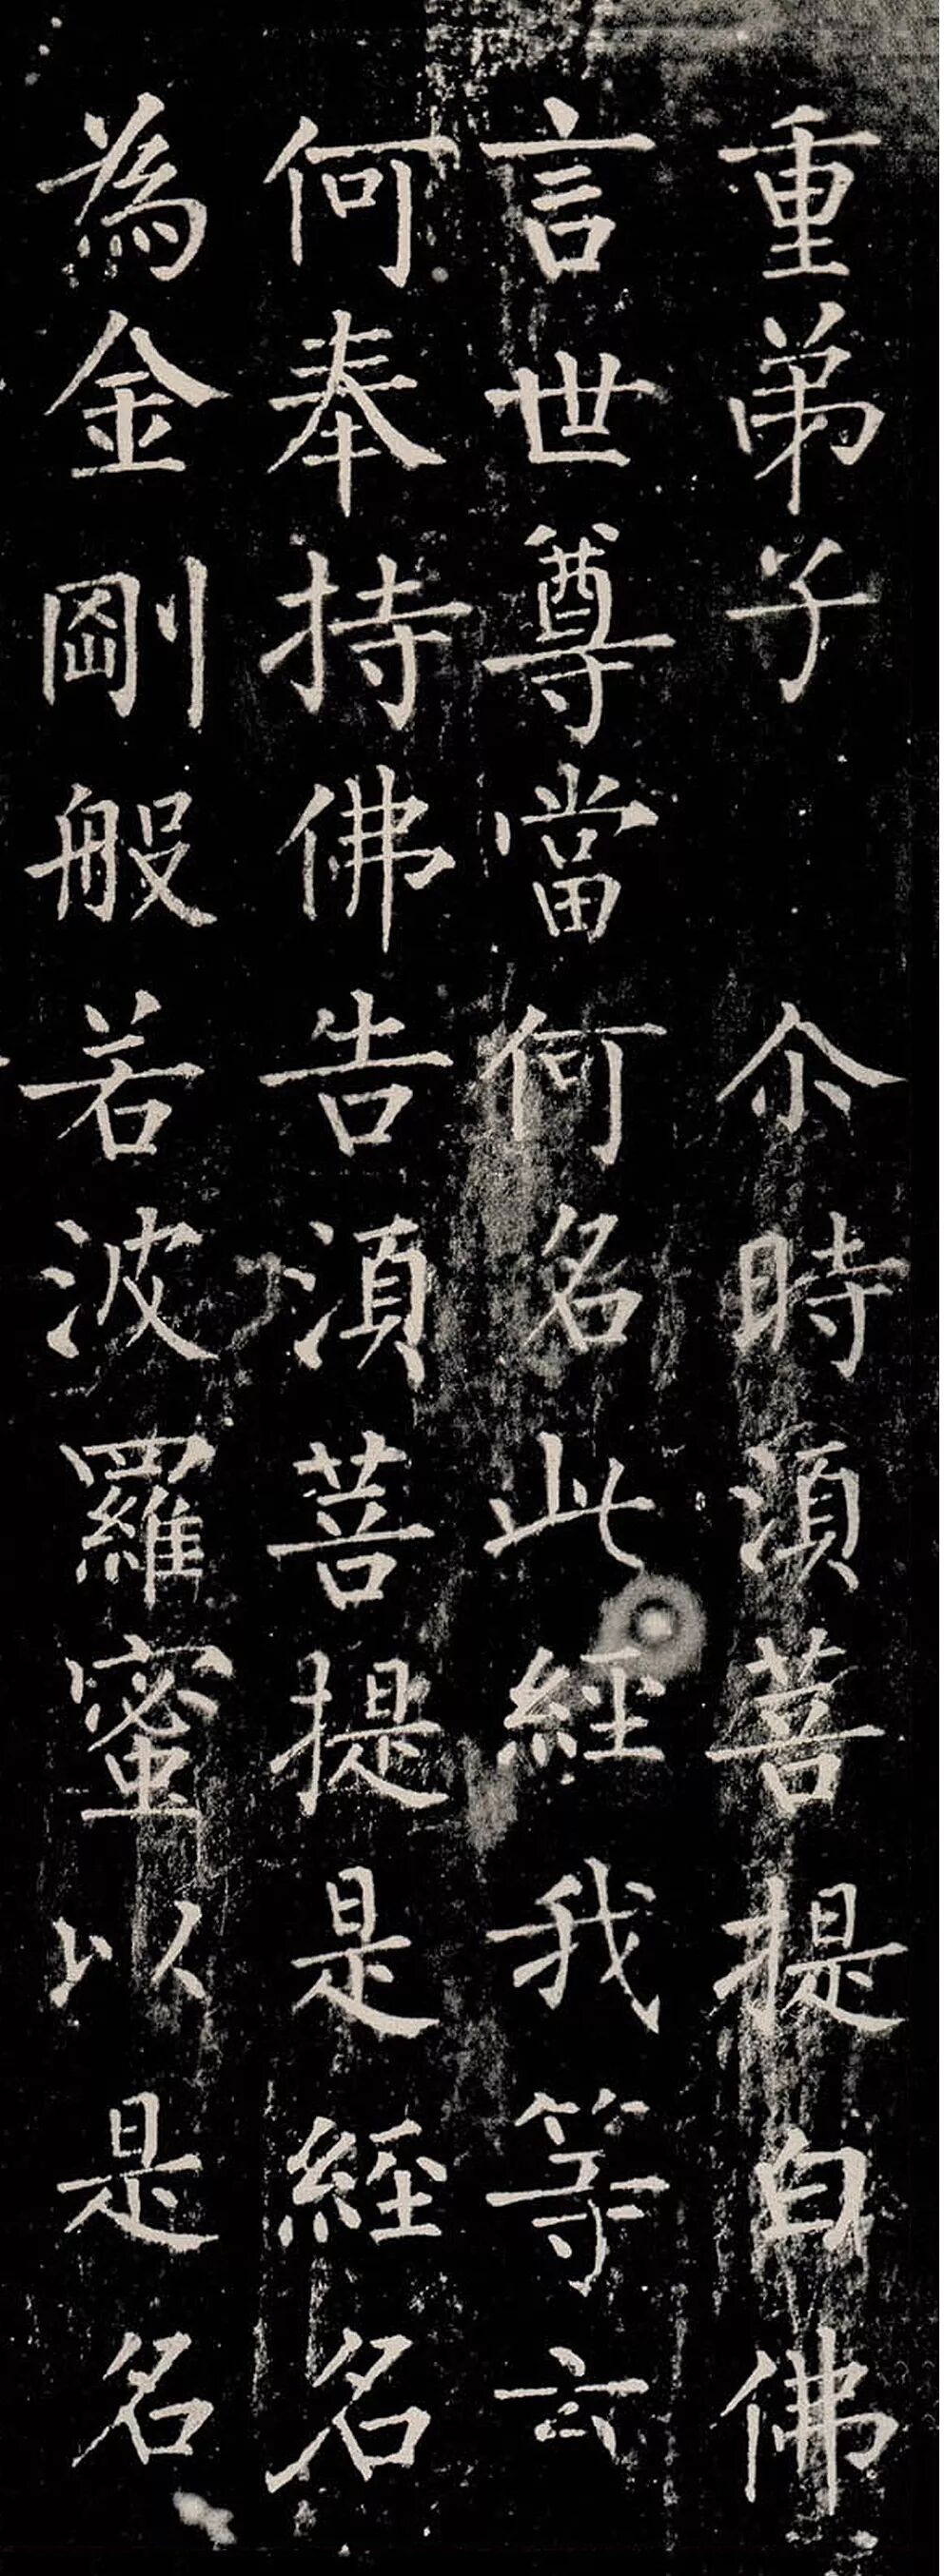 重弟子　尒時湏菩提白佛
言世尊當何名此經我等云
何奉持佛告湏菩提是經名
為金剛般若波羅蜜以是名